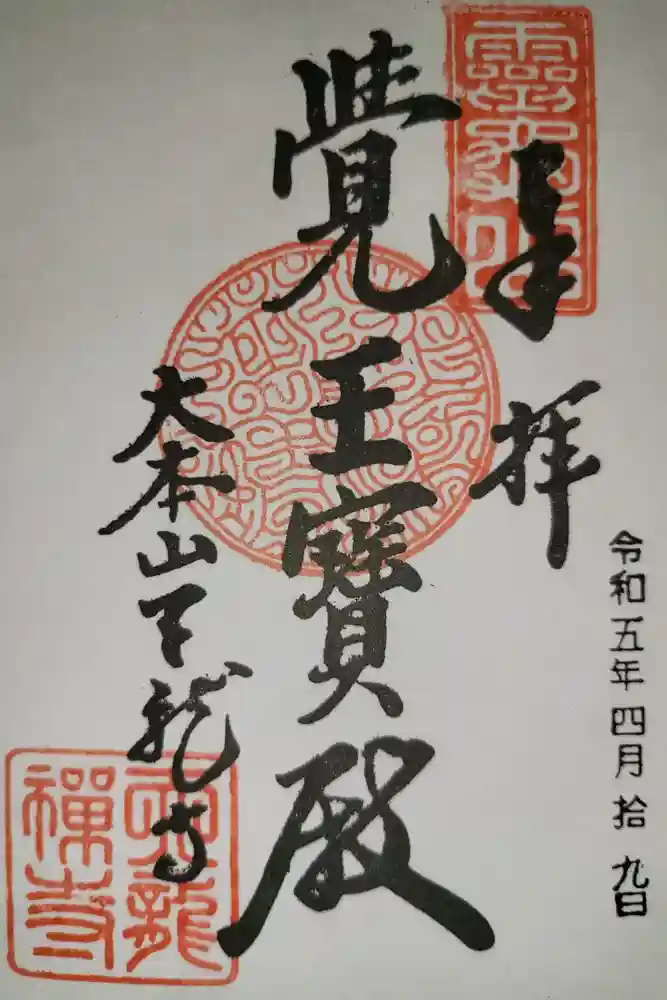 令和五年四月拾九日
奉拝
靈龜山
覺王寶殿
大本山天龍寺
天龍
禪寺